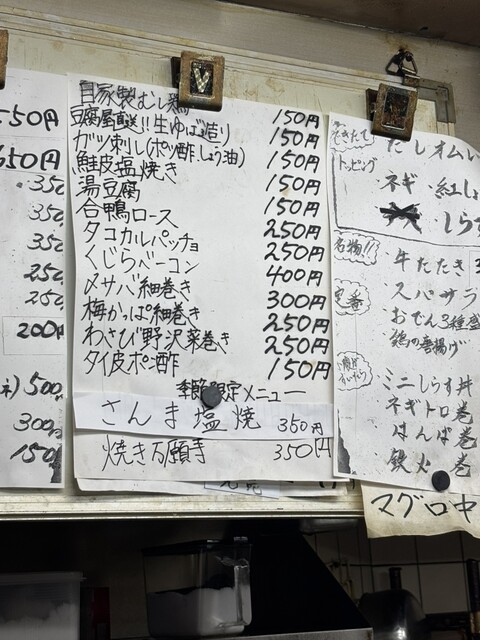 550円
650円
350
350
350
250
250
200円
500
300
150
自家製むし鶏 150円
豆腐屋直送!!生ゆば造り 150円
ガツ刺し(ポン酢.しょう油) 150円
鮭皮塩焼き 150円
湯豆腐 150円
合鴨ロース 250円
タコカルパッチョ 250円
くじらベーコン 400円
〆サバ細巻き 300円
梅かっぱ細巻き 250円
わさび野沢菜巻き 250円
タイ皮ポン酢 150円
季節限定メニュー
さんま塩焼 350円
焼き万願寺 350円
だし才ムい
トッピング
・ネギ・紅しょ
しらす
名物!!
・牛たたき
定番
・スパサラ
おでん3種盛
鶏の唐揚げ
ミニしらす丼
ネギトロ巻
はんぱ巻
鉄火巻
マグロ中